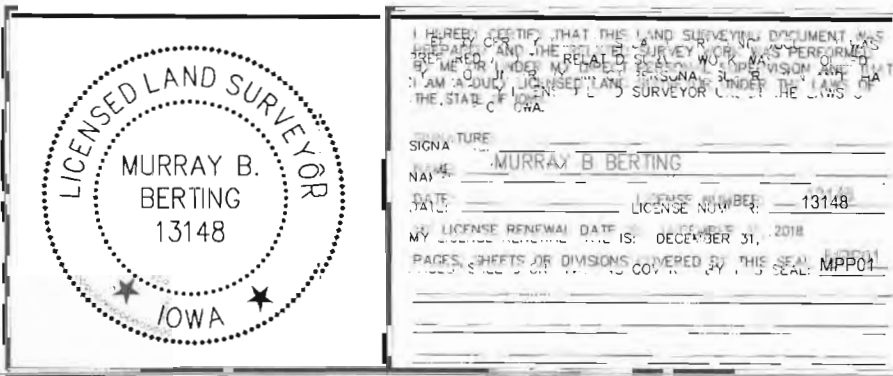 LICENSED LAND SURVEYOR
MURRAY B.
BERTING
13148
IOWA
I HEREBY CERTIFY THAT THIS LAND SURVEYING DOCUMENT WAS
PREPARED AND THE RELATED SURVEY WORK WAS PERFORMED
BY ME OR UNDER MY DIRECT PERSONAL SUPERVISION AND THAT
I AM A DULY LICENSED LAND SURVEYOR UNDER THE LAWS OF
THE STATE OF IOWA.
SIGNATURE:
NAME: MURRAY B BERTING
DATE: LICENSE NUMBER: 13148
MY LICENSE RENEWAL DATE IS: DECEMBER 31, 2018
PAGES, SHEETS OR DIVISIONS COVERED BY THIS SEAL: MPP01